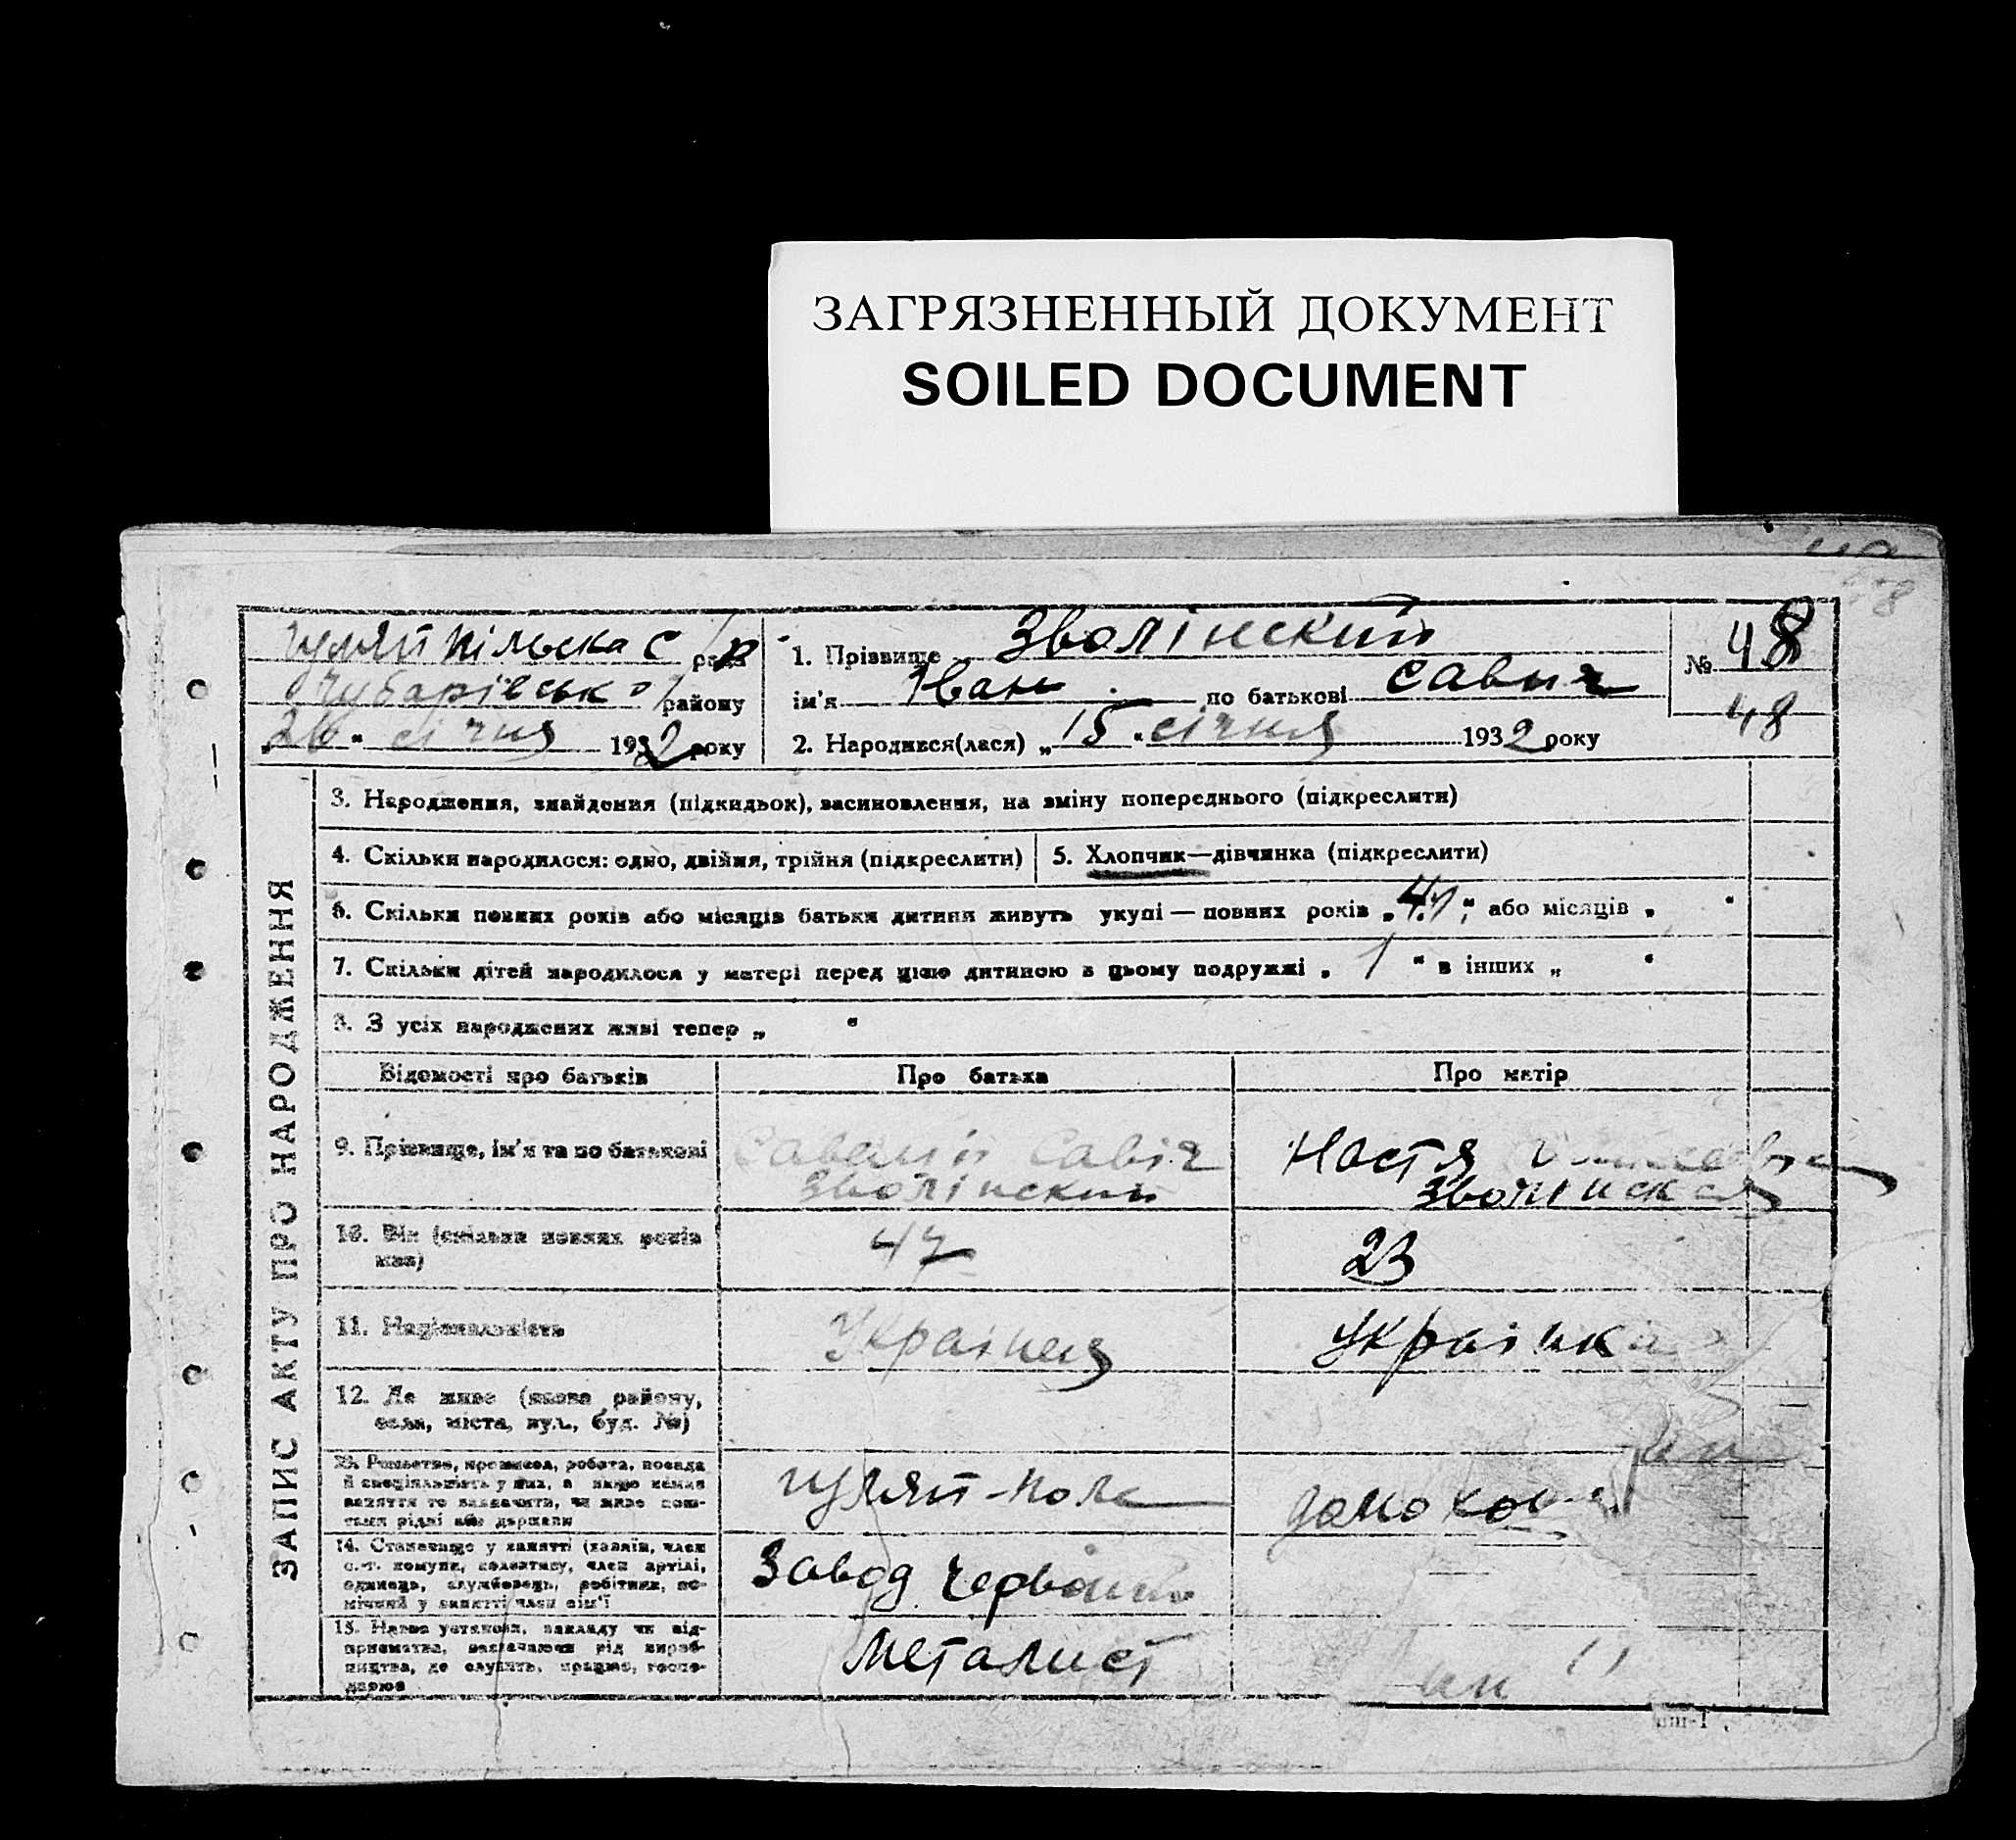 ЗАГРЯЗНЕННЫЙ ДОКУМЕНТ
SOILED DOCUMENT
48
Гуляй Пільска с/р рада
Чубарівського району
„26" січня 1932 року
1. Прізвище Зволінский
ім'я Іван по батькові Савич
2. Народився(лася) „15" січня 1932 року
№ 48
48
ЗАПИС АКТУ ПРО НАРОДЖЕННЯ
3. Народження, знайдення (підкидьок), засиновлення, на зміну попереднього (підкреслити)
4. Скільки народилося: одно, двійня, трійня (підкреслити)
5. Хлопчик—дівчинка (підкреслити)
6. Скільки повних років або місяців батьки дитини живуть укупі — повних років „ " або місяців „ "
7. Скільки дітей народилося у матері перед цією дитиною в цьому подружжі „ 1 " в інших „ "
8. З усіх народжених живі тепер „ "
Відомості про батьків
Про батька
Про матір
9. Прізвище, ім'я та по батькові
Савич
Зволінский
Настя
Зволінская
10. Вік (скільки повних років має)
47
23
11. Національність
Українець
Українка
12. Де живе (назва району, села, міста, вул., буд. №)
13. Ремество, промисел, робота, посада й спеціяльність у них, а якщо немає заняття то зазначити, чи живе коштами рідні або держави
Гуляй-Поле
домохоз
14. Становище у занятті (хазяїн, член с.-г. комуни, колективу, член артілі, одинець, службовець, робітник, помічний у занятті член сім'ї
Завод Червоний
15. Назва установи, закладу чи підприємства, зазначаючи рід виробництва, де служить, працює, господарює
Металист